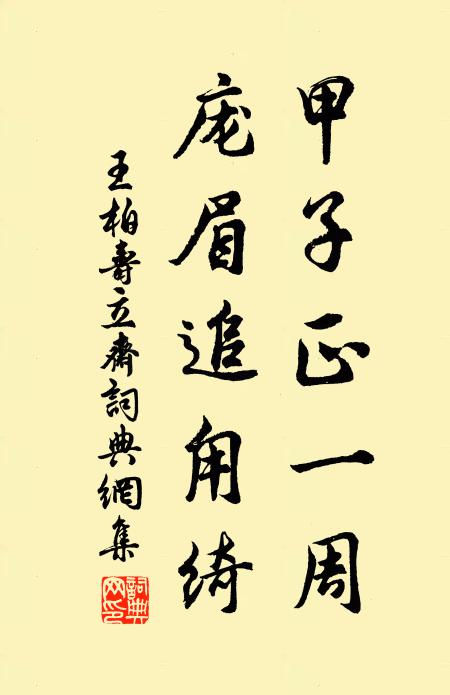 甲子正一周
庞眉追甪绮
王柏壽立齋詞典網集
詞典網印